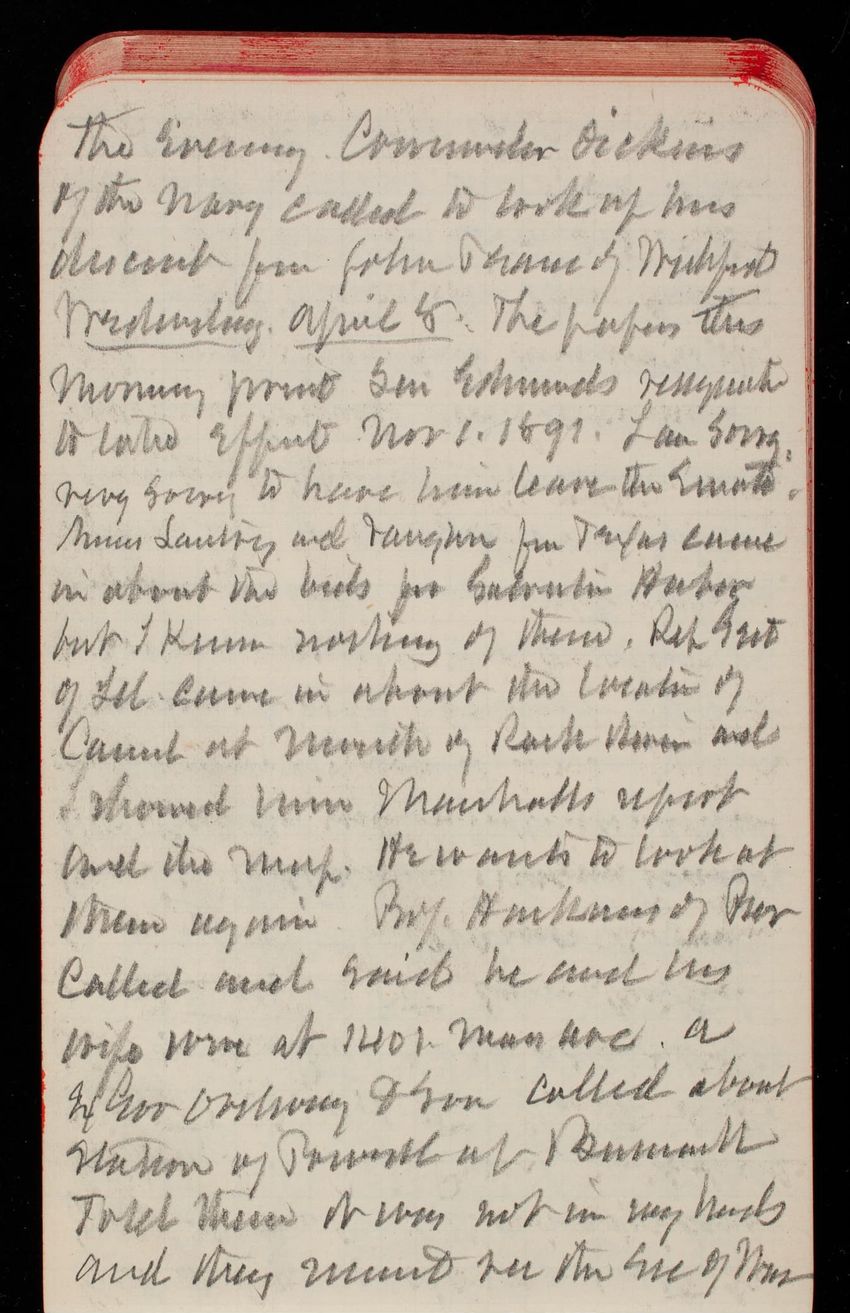 The Evening. Commander Dickins
of the Navy called to look up his
descent from John Greene of Wickford
Wednesday. April 8. The papers this
Morning print Sen Edmunds resignation
to take Effect Nov 1. 1891. I am Sorry,
very Sorry to have him leave the Senate.
Messrs Lanting and Vaughn from Texas came
in about the bids for Sabine Harbor
but I Know nothing of them. Rep Gest
of Ill. came in about the location of
Canal at Mouth of Rock River and
I showed him Marshalls report
and the map. He wants to look at
them again. Prof. Harkness of Prov
Called and Said he and his
wife were at 1401 Mass ave. a
Ex Gov Ordway & Son called about
Station of at Bismarck
Told them it was not in my hands
and they must see the Sec of War